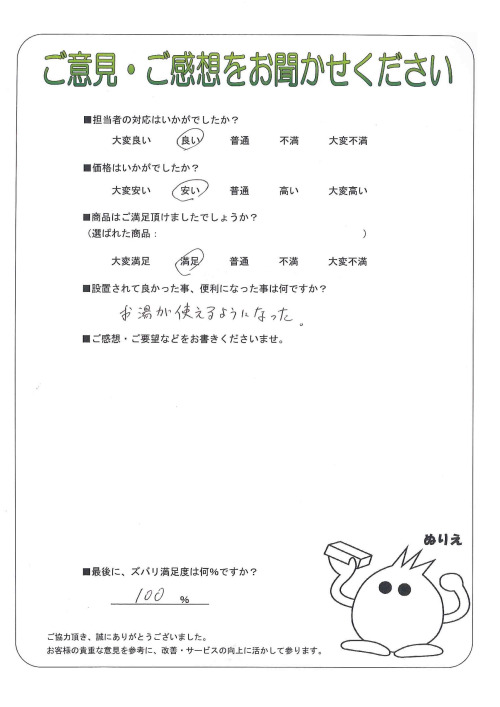 ご意見・ご感想をお聞かせください
■担当者の対応はいかがでしたか？
大変良い 良い 普通 不満 大変不満
■価格はいかがでしたか？
大変安い 安い 普通 高い 大変高い
■商品はご満足頂けましたでしょうか？
（選ばれた商品： ）
大変満足 満足 普通 不満 大変不満
■設置されて良かった事、便利になった事は何ですか？
お湯が使えるようになった。
■ご感想・ご要望などをお書きくださいませ。
ぬりえ
■最後に、ズバリ満足度は何％ですか？
100 ％
ご協力頂き、誠にありがとうございました。
お客様の貴重な意見を参考に、改善・サービスの向上に活かして参ります。